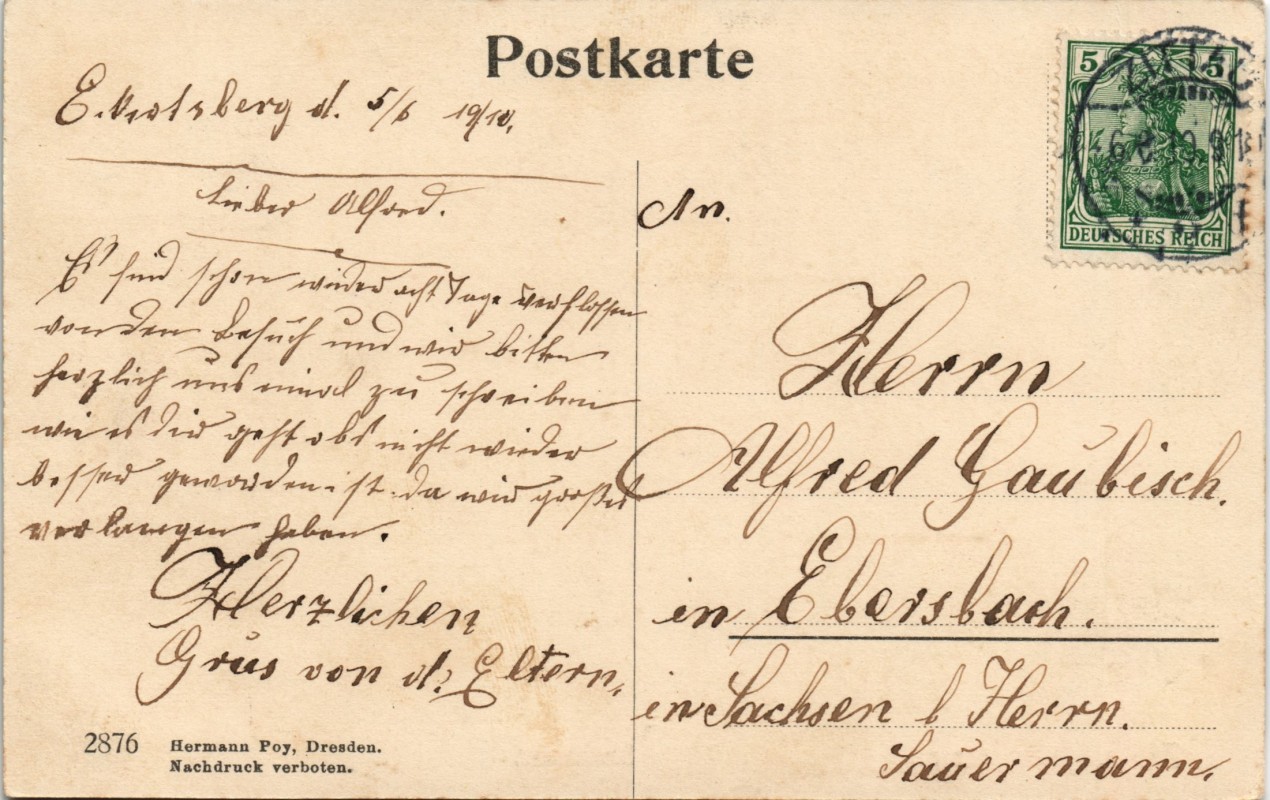 Postkarte
Eckartsberg d. 5/6 1910.
Lieber Alfred.
Es sind schon wieder acht Tage verflossen
von den Besuch und wir bitten
herzlich uns einmal zu schreiben
wie es dir geht obs nicht wieder
besser geworden ist. da wir großes
verlangen haben.
Herzlichen
Grus von d. Eltern.
2876 Hermann Poy, Dresden.
Nachdruck verboten.
5 5
DEUTSCHES REICH
An.
Herrn
Alfred Gaubisch.
in Ebersbach.
in Sachsen b Herrn.
Sauermann.